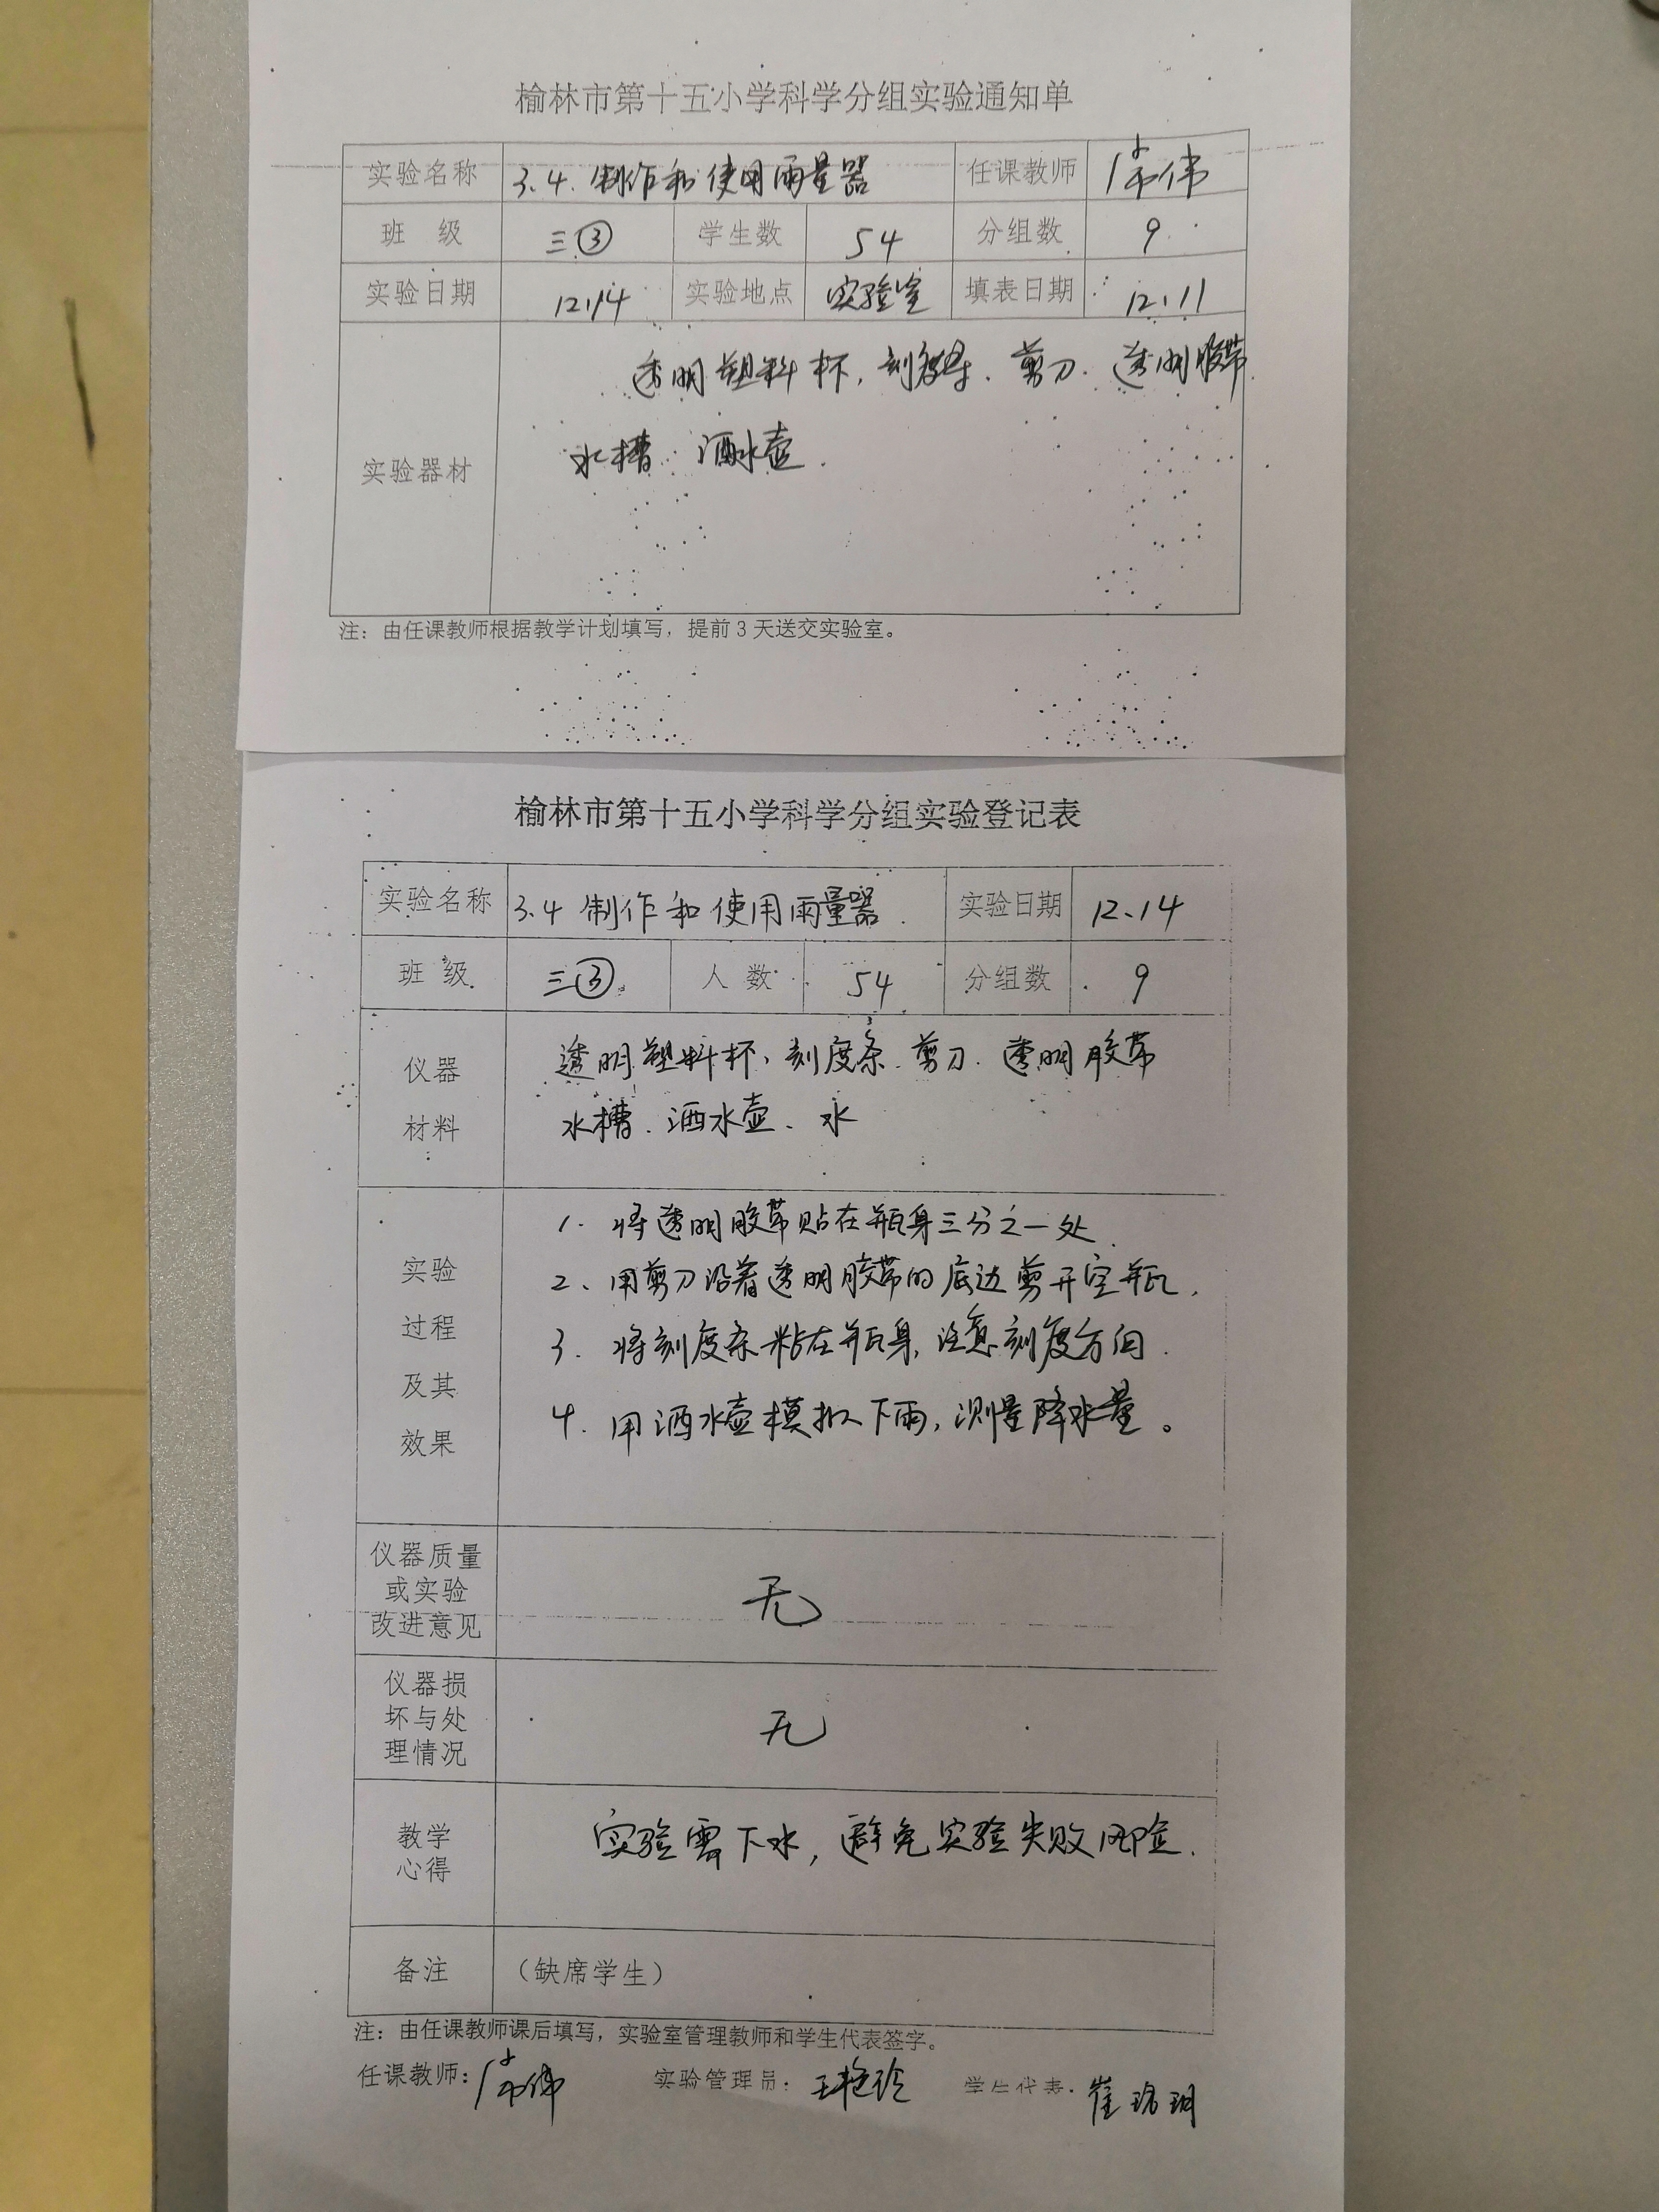 榆林市第十五小学科学分组实验通知单
实验名称 3.4.制作和使用雨量器 任课教师
班 级 三③ 学生数 54 分组数 9
实验日期 12.14 实验地点 实验室 填表日期 12.11
实验器材
透明塑料杯、刻度条、剪刀、透明胶带
水槽、洒水壶.
注：由任课教师根据教学计划填写，提前3天送交实验室。
榆林市第十五小学科学分组实验登记表
实验名称 3.4 制作和使用雨量器. 实验日期 12.14
班 级 三③ 人 数 54 分组数 9
仪器
材料
透明塑料杯、刻度条、剪刀、透明胶带
水槽、洒水壶、水
实验
过程
及其
效果
1. 将透明胶带贴在瓶身三分之一处.
2、用剪刀沿着透明胶带的底边剪开空瓶.
3. 将刻度条粘在瓶身,注意刻度方向.
4. 用洒水壶模拟下雨,测量降水量。
仪器质量
或实验
改进意见
无
仪器损
坏与处
理情况
无
教学
心得
实验需下水,避免实验失败风险.
备注 （缺席学生）
注：由任课教师课后填写，实验室管理教师和学生代表签字。
任课教师： 实验管理员：王艳玲 学生代表：崔珞玥